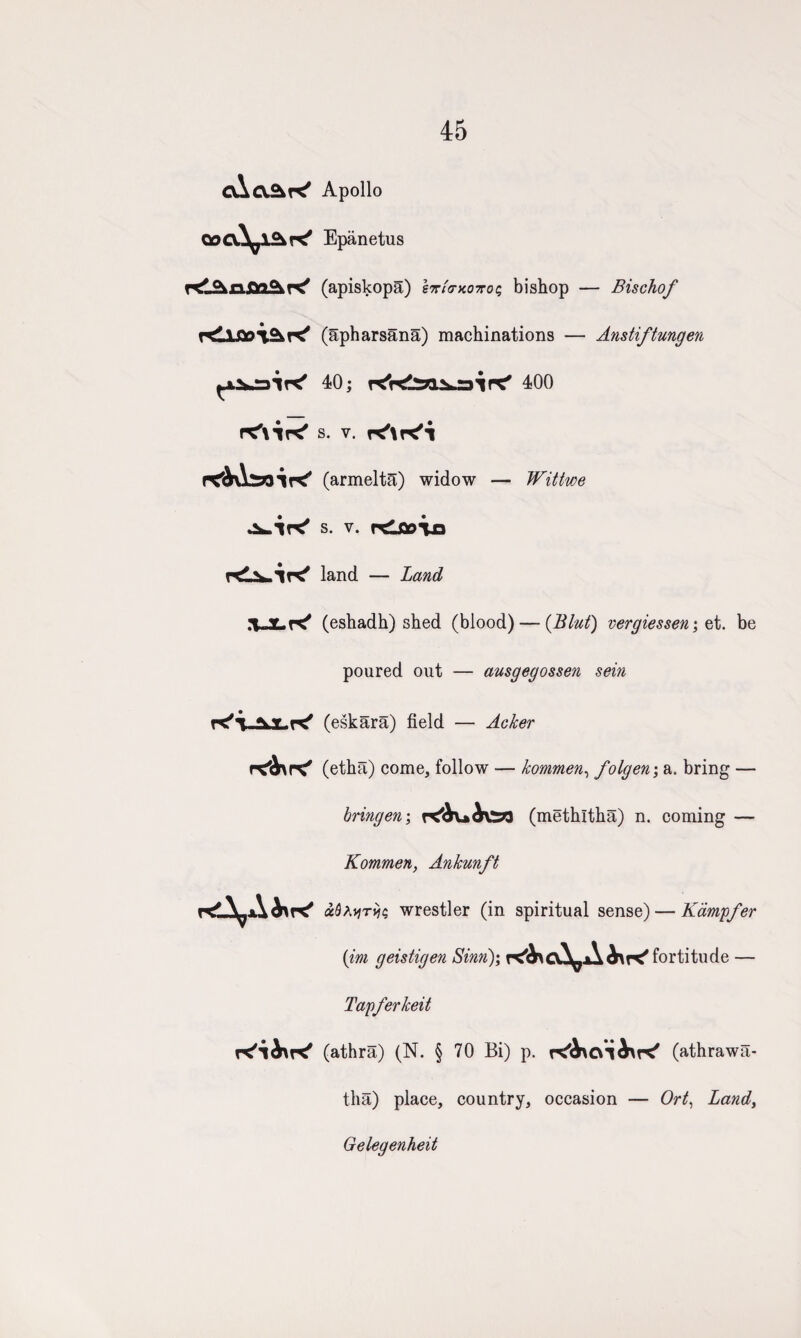 45
ܐܦܘܠܘ Apollo
ܐܦܢܛܘܣ Epänetus
ܐܦܣܩܦܐ (apisḳopā) ἐπίσκοπος bishop — Bischof
ܐܦܪܣܢܐ (āpharsānā) machinations — Anstiftungen
ܐܪܒܥܝܢ 40; ܐܪܒܥܡܐܐ 400
ܐܪܙܐ s. v. ܪܐܙܐ
ܐܪܡܠܬܐ (armeltā) widow — Wittwe
ܐܪܥ s. v. ܩܪܣܐ
ܐܪܥܐ land — Land
ܐܫܕ (eshadh) shed (blood) — (Blut) vergiessen; et. be
poured out — ausgegossen sein
ܐܫܟܪܐ (eškārā) field — Acker
ܐܬܐ (ethā) come, follow — kommen, folgen; a. bring —
bringen; ܡܬܝܬܐ (mēthīthā) n. coming —
Kommen, Ankunft
ܐܬܠܝܛܐ ἀθλητής wrestler (in spiritual sense) — Kämpfer
(im geistigen Sinn); ܐܬܠܝܛܘܬܐ fortitude —
Tapferkeit
ܐܬܪܐ (athrā) (N. § 70 Bi) p. ܐܬܪ̈ܘܬܐ (athrawā-
thā) place, country, occasion — Ort, Land,
Gelegenheit